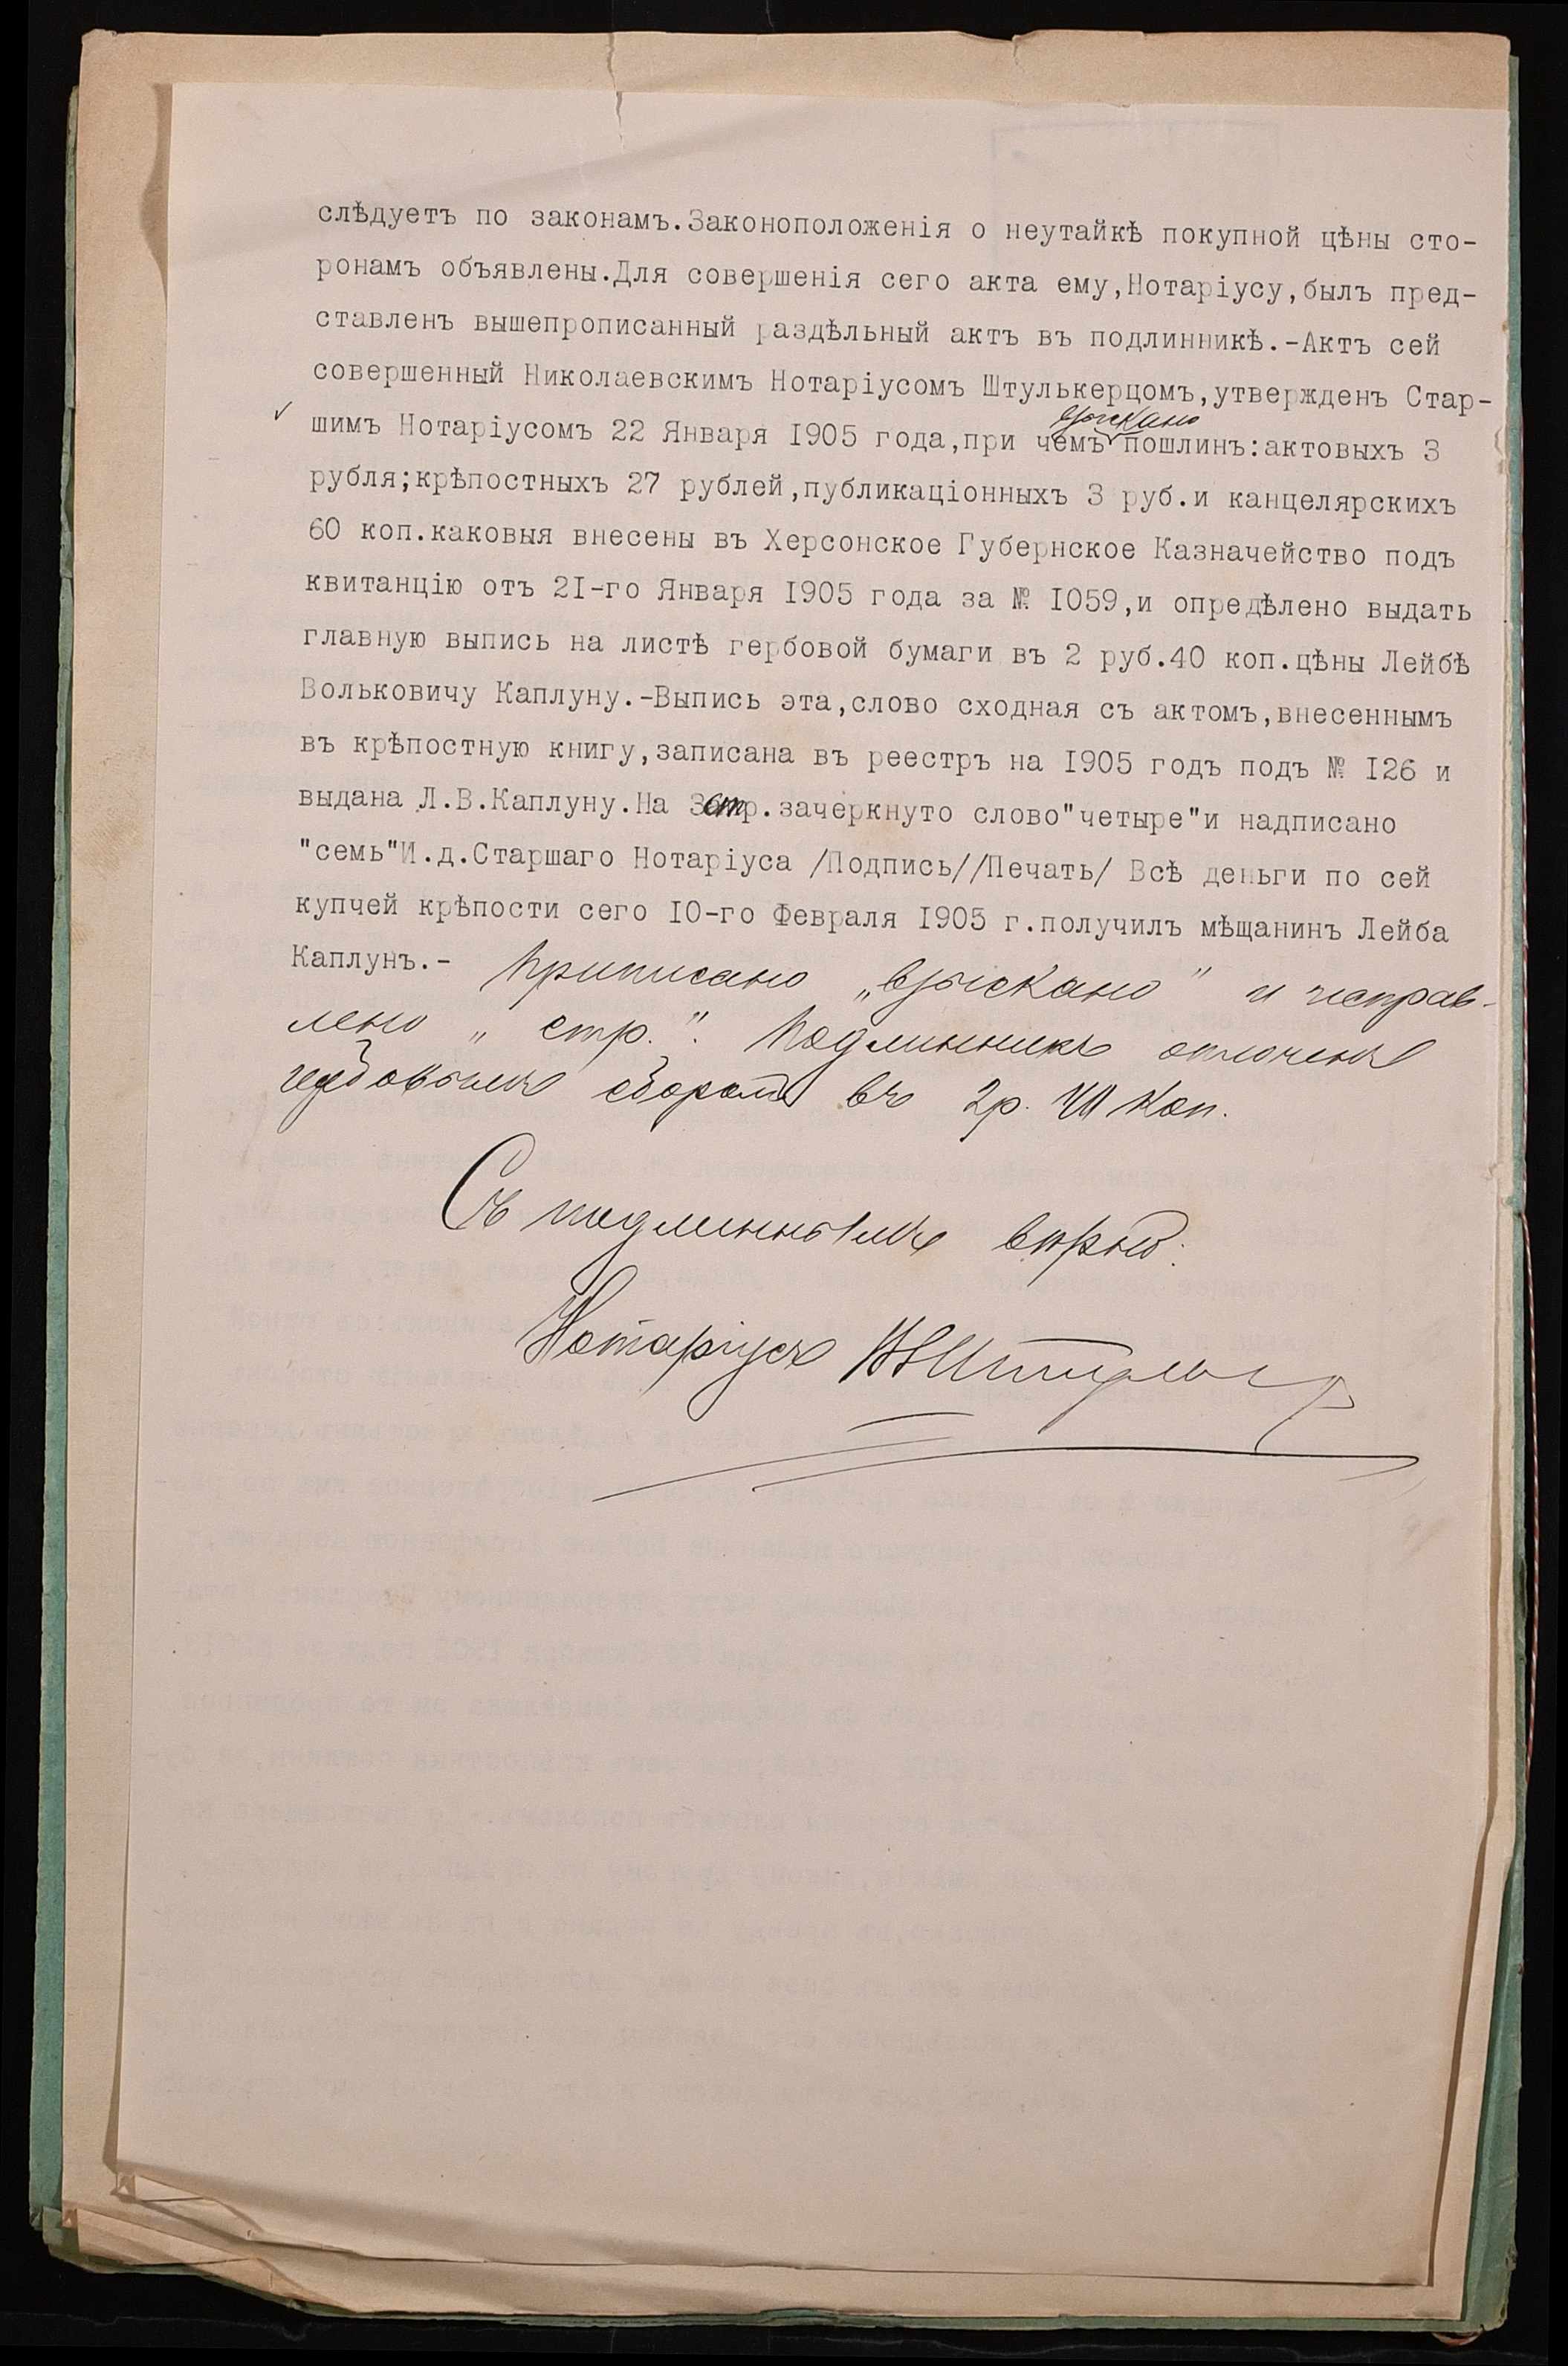 слѣдуетъ по законамъ.Законоположенія о неутайкѣ покупной цѣны сто-
ронамъ объявлены.Для совершенія сего акта ему,Нотаріусу,былъ пред-
ставленъ вышепрописанный раздѣльный актъ въ подлинникѣ.-Актъ сей
совершенный Николаевскимъ Нотаріусомъ Штулькерцомъ,утвержденъ Стар-
взыскано
шимъ Нотаріусомъ 22 Января I905 года,при чемъ пошлинъ:актовыхъ 3
рубля;крѣпостныхъ 27 рублей,публикаціонныхъ 3 руб.и канцелярскихъ
60 коп.каковыя внесены въ Херсонское Губернское Казначейство подъ
квитанцію отъ 2I-го Января I905 года за № I059,и опредѣлено выдать
главную выпись на листѣ гербовой бумаги въ 2 руб.40 коп.цѣны Лейбѣ
Вольковичу Каплуну.-Выпись эта,слово сходная съ актомъ,внесеннымъ
въ крѣпостную книгу,записана въ реестръ на I905 годъ подъ № I26 и
выдана Л.В.Каплуну.На 3 стр.зачеркнуто слово"четыре"и надписано
"семь"И.д.Старшаго Нотаріуса /Подпись//Печать/ Всѣ деньги по сей
купчей крѣпости сего I0-го Февраля I905 г.получилъ мѣщанинъ Лейба
Каплунъ.- Приписано „взыскано" и исправ-
лено „стр.". Подлинникъ оплоченъ
гербовымъ сборомъ въ 2р. 40 коп.
Съ подлиннымъ вѣрно:
Нотаріусъ